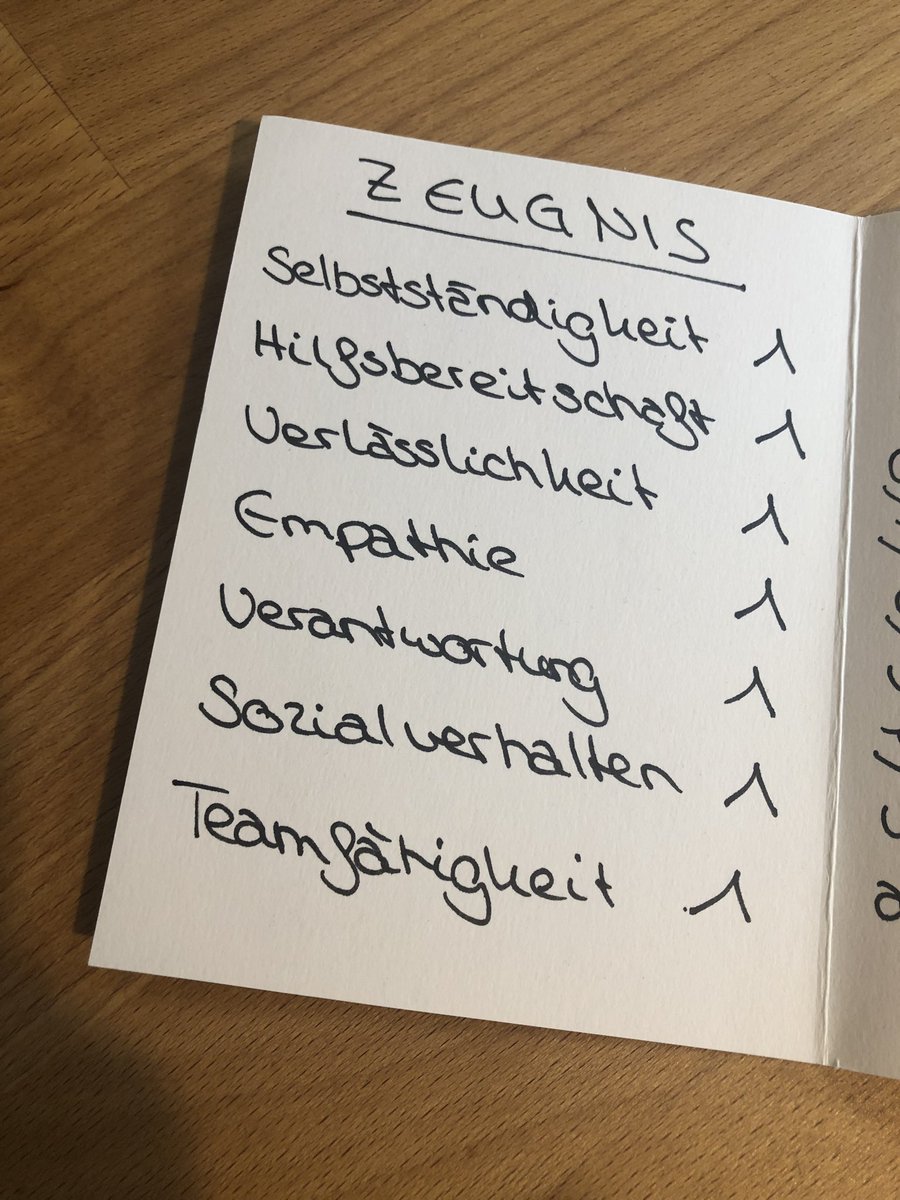 ZEUGNIS
Selbstständigkeit 1
Hilfsbereitschaft 1
Verlässlichkeit 1
Empathie 1
Verantwortung 1
Sozialverhalten 1
Teamfähigkeit 1